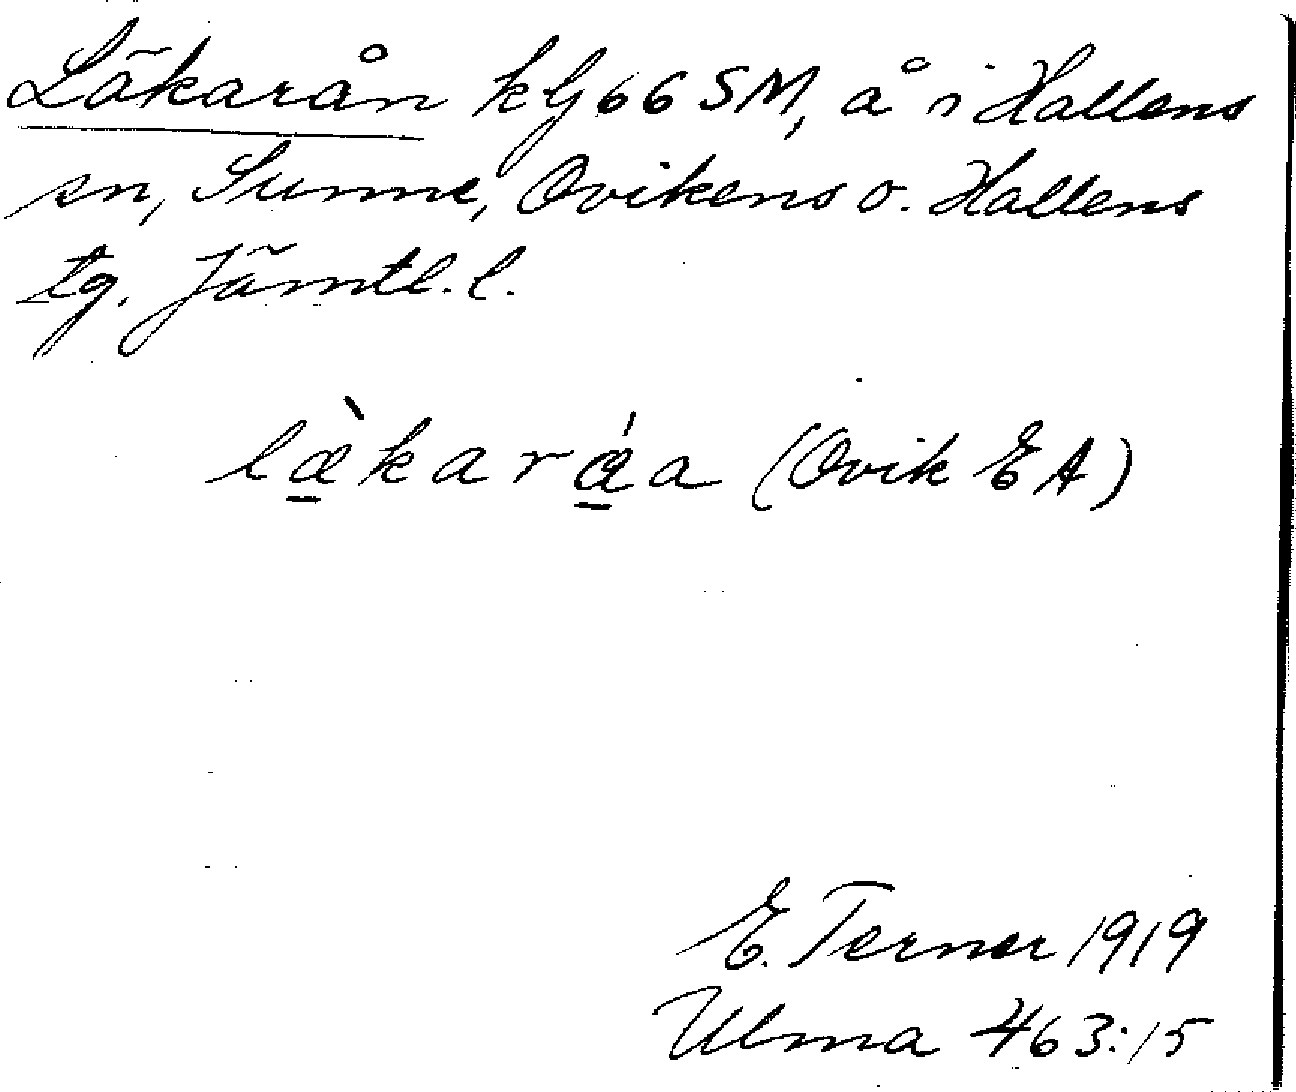 Läkarån klj 66 SM, å i Hallens
sn, Sunne, Ovikens o. Hallens
tg. Jämtl. l.
læ̀karáa (Ovik EA)
E. Terner 1919
Ulma 463:15